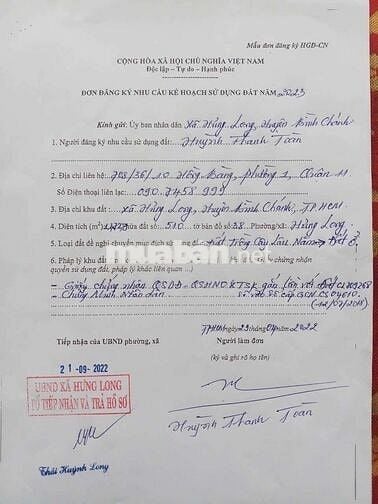 Mẫu đơn đăng ký HGĐ-CN
CỘNG HÒA XÃ HỘI CHỦ NGHĨA VIỆT NAM
Độc lập – Tự do – Hạnh phúc
ĐƠN ĐĂNG KÝ NHU CẦU KẾ HOẠCH SỬ DỤNG ĐẤT NĂM 2023
Kính gửi: Ủy ban nhân dân Xã Hưng Long, Huyện Bình Chánh
1. Người đăng ký nhu cầu sử dụng đất: Huỳnh Thanh Toàn
2. Địa chỉ liên hệ: 708/36/10 Hồng Bàng, Phường 1, Quân 11
Số Điện thoại liên lạc: 090.7458 999
3. Địa chỉ khu đất: Xã Hưng Long, Huyện Bình Chánh, TP.HCM.
4. Diện tích (m²) thửa đất số: 510 tờ bản đồ 38 Phường: Hưng Long
5. Loại đất đề nghị chuyển mục đích sử dụng đất: Đất Trồng Cây Lâu Năm Đất Ở.
6. Pháp lý khu đất chứng nhận
quyền sử dụng đất, pháp lý khác liên quan):
muaban.net
- Giấy chứng nhận QSDĐ-QSHNO & TSK gắn liền với Đất
- Chứng Minh Nhân Dân số vào sổ cấp GCN: CS04610.
TPHCM ngày 23 tháng 04 năm 2022
Tiếp nhận của UBND phường, xã
Người làm đơn
(ký và ghi rõ họ tên)
21-09-2022
UBND XÃ HƯNG LONG
TỔ TIẾP NHẬN VÀ TRẢ HỒ SƠ
Huỳnh Thanh Toàn
Thái Huỳnh Long